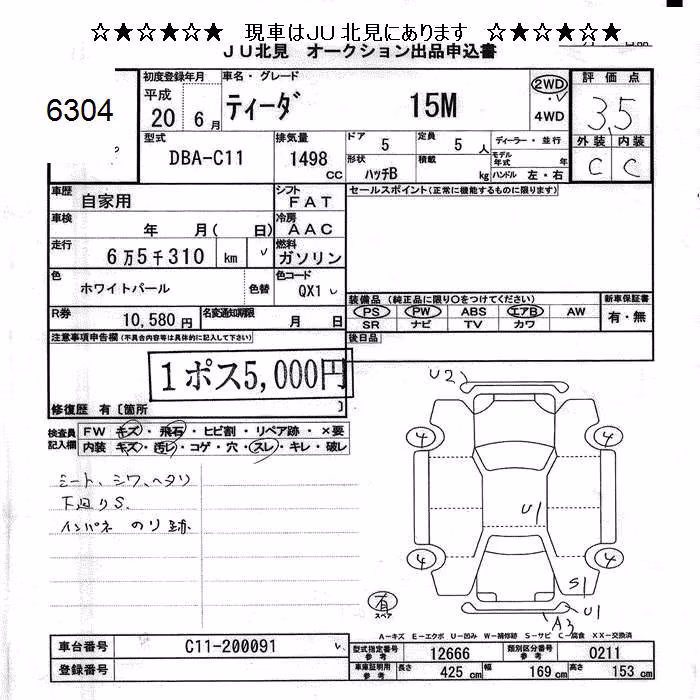 ☆★☆★☆★　現車はＪＵ北見にあります　☆★☆★☆★
ＪＵ北見　オークション出品申込書
6304
初度登録年月
平成
20 年 6 月
車名・グレード
ティーダ 15M
2WD
4WD
評価点
3,5
外装 内装
C C
型式
DBA-C11
排気量
1498 CC
ドア 5
定員 5 人
ディーラー・並行
形状 ハッチB
積載 kg
モデル年式 年
ハンドル 左・右
車歴 自家用
シフト FAT
セールスポイント(正常に機能するものに限ります)
車検 年 月( 日)
冷房 AAC
走行 6万5千310 km
燃料 ガソリン
色 ホワイトパール 色替
色コード QX1
装備品 (純正品に限り○をつけてください)
新車保証書
PS PW ABS エアB AW
有・無
SR ナビ TV カワ
R券 10,580円
名変通知期限 月 日
注意事項申告欄(不具合内容等は具体的に記入して下さい)
後日品
1ポス5,000円
修復歴 有〔箇所 〕
検査員記入欄
FW キズ・飛石・ヒビ割・リペア跡・×要
内装 キズ・汚レ・コゲ・穴・スレ・キレ・破レ
シート、シワ、ヘタリ
下廻りS.
インパネ のり跡
U2
4
4
U1
4
4
S1
U1
A3
有
スペア
A−キズ E−エクボ U−凹み W−補修跡 S−サビ C−腐食 XX−交換済
車台番号 C11-200091
型式指定番号 参考 12666
類別区分番号 参考 0211
登録番号
車庫証明用 参考
長さ 425 cm
幅 169 cm
高さ 153 cm